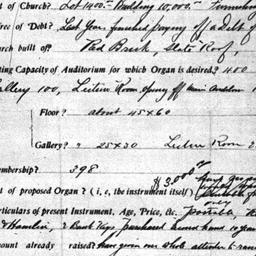 t of Church? Lot 1400 — Building 10,000.—
ree of Debt? Last Year finished paying off a Debt of
urch built off Red Brick, Slate Roof,
ating Capacity of Auditorium for which Organ is desired? 400
allery 100, Lecture Room opening off Main Auditorm
Floor? about 45 x 60
Gallery? " 25 x 30 Lecture Room
embership? 398
$3,000
t of proposed Organ? (i, e, the instrument itself)
articulars of present Instrument, Age, Price, &c.
Hamlin, 2 Bank Keys purchased second hand 10 years
mount already raised? have given our whole attention to